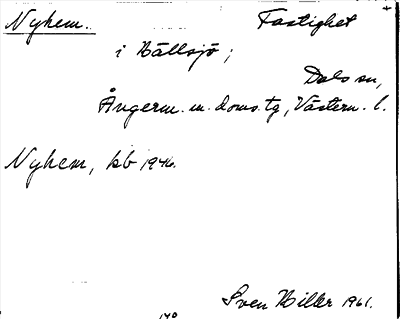 Nyhem. Fastighet
i Hällsjö;
Dals sn,
Ångerm. m. doms. tg, Västern. l.
Nyhem, kb 1946.
Sven Hiller 1961.
140